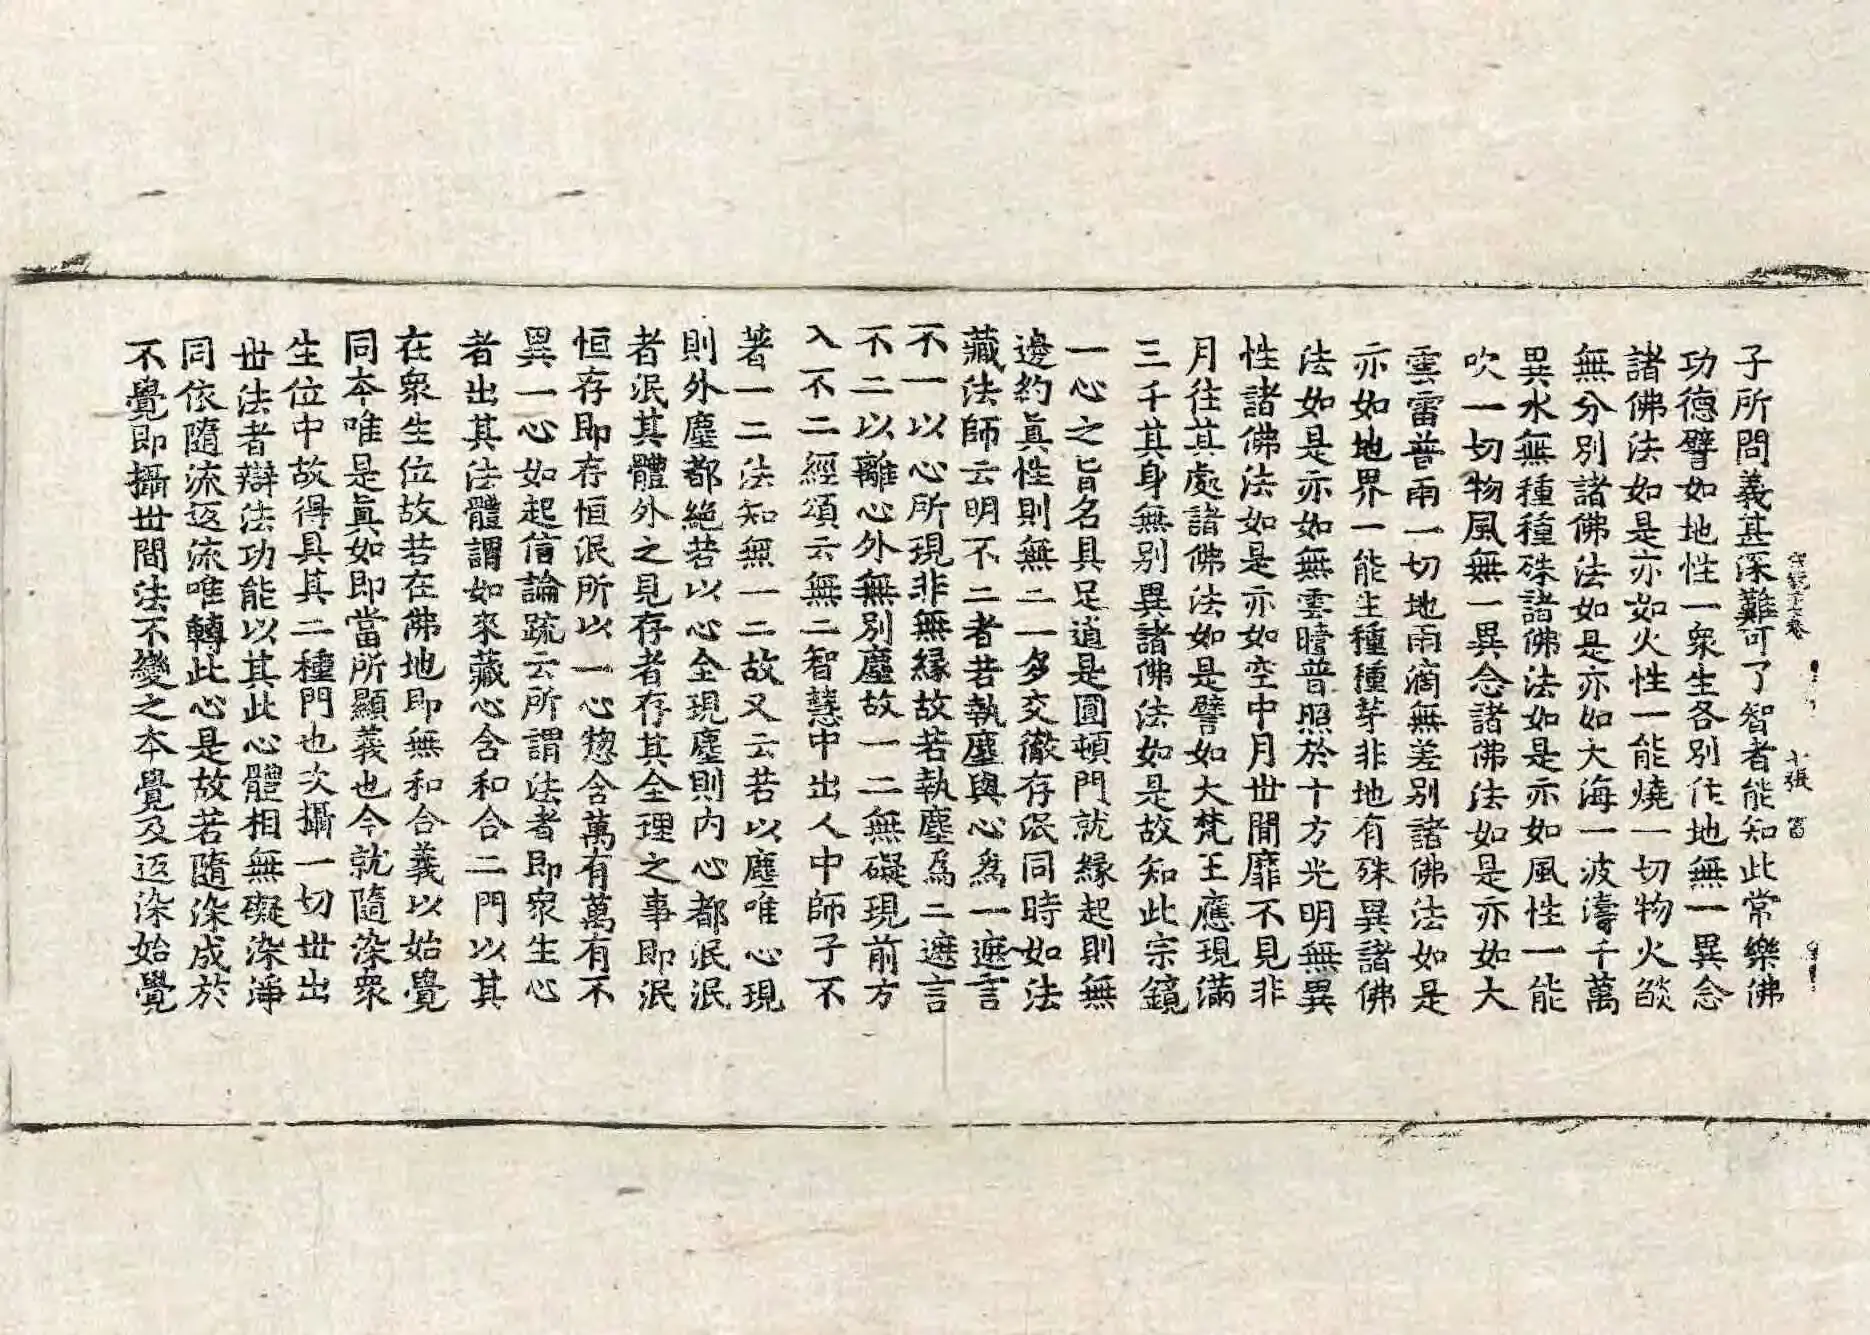 子所問義甚深難可了智者能知此常樂佛
功德譬如地性一衆生各別住地無一異念
諸佛法如是亦如火性一能燒一切物火燄
無分別諸佛法如是亦如大海一波濤千萬
異水無種種殊諸佛法如是亦如風性一能
吹一切物風無一異念諸佛法如是亦如大
雲雷普雨一切地雨滴無差別諸佛法如是
亦如地界一能生種種芽非地有殊異諸佛
法如是亦如無雲曀普照於十方光明無異
性諸佛法如是亦如空中月世閒靡不見非
月往其處諸佛法如是譬如大梵王應現滿
三千其身無別異諸佛法如是故知此宗鏡
一心之旨名具足道是圓頓門就緣起則無
邊約眞性則無二一多交徹存泯同時如法
藏法師云明不二者若執塵與心爲一遮言
不一以心所現非無緣故若執塵爲二遮言
不二以離心外無別塵故一二無礙現前方
入不二經頌云無二智慧中出人中師子不
著一二法知無一二故又云若以塵唯心現
則外塵都絶若以心全現塵則內心都泯泯
者泯其體外之見存者存其全理之事即泯
恒存即存恒泯所以一心惣含萬有萬有不
異一心如起信論疏云所謂法者即衆生心
者出其法體謂如來藏心含和合二門以其
在衆生位故若在佛地即無和合義以始覺
同本唯是眞如即當所顯義也今就隨染衆
生位中故得具其二種門也次攝一切世出
世法者辯法功能以其此心體相無礙染淨
同依隨流返流唯轉此心是故若隨染成於
不覺即攝世閒法不變之本覺及返染始覺